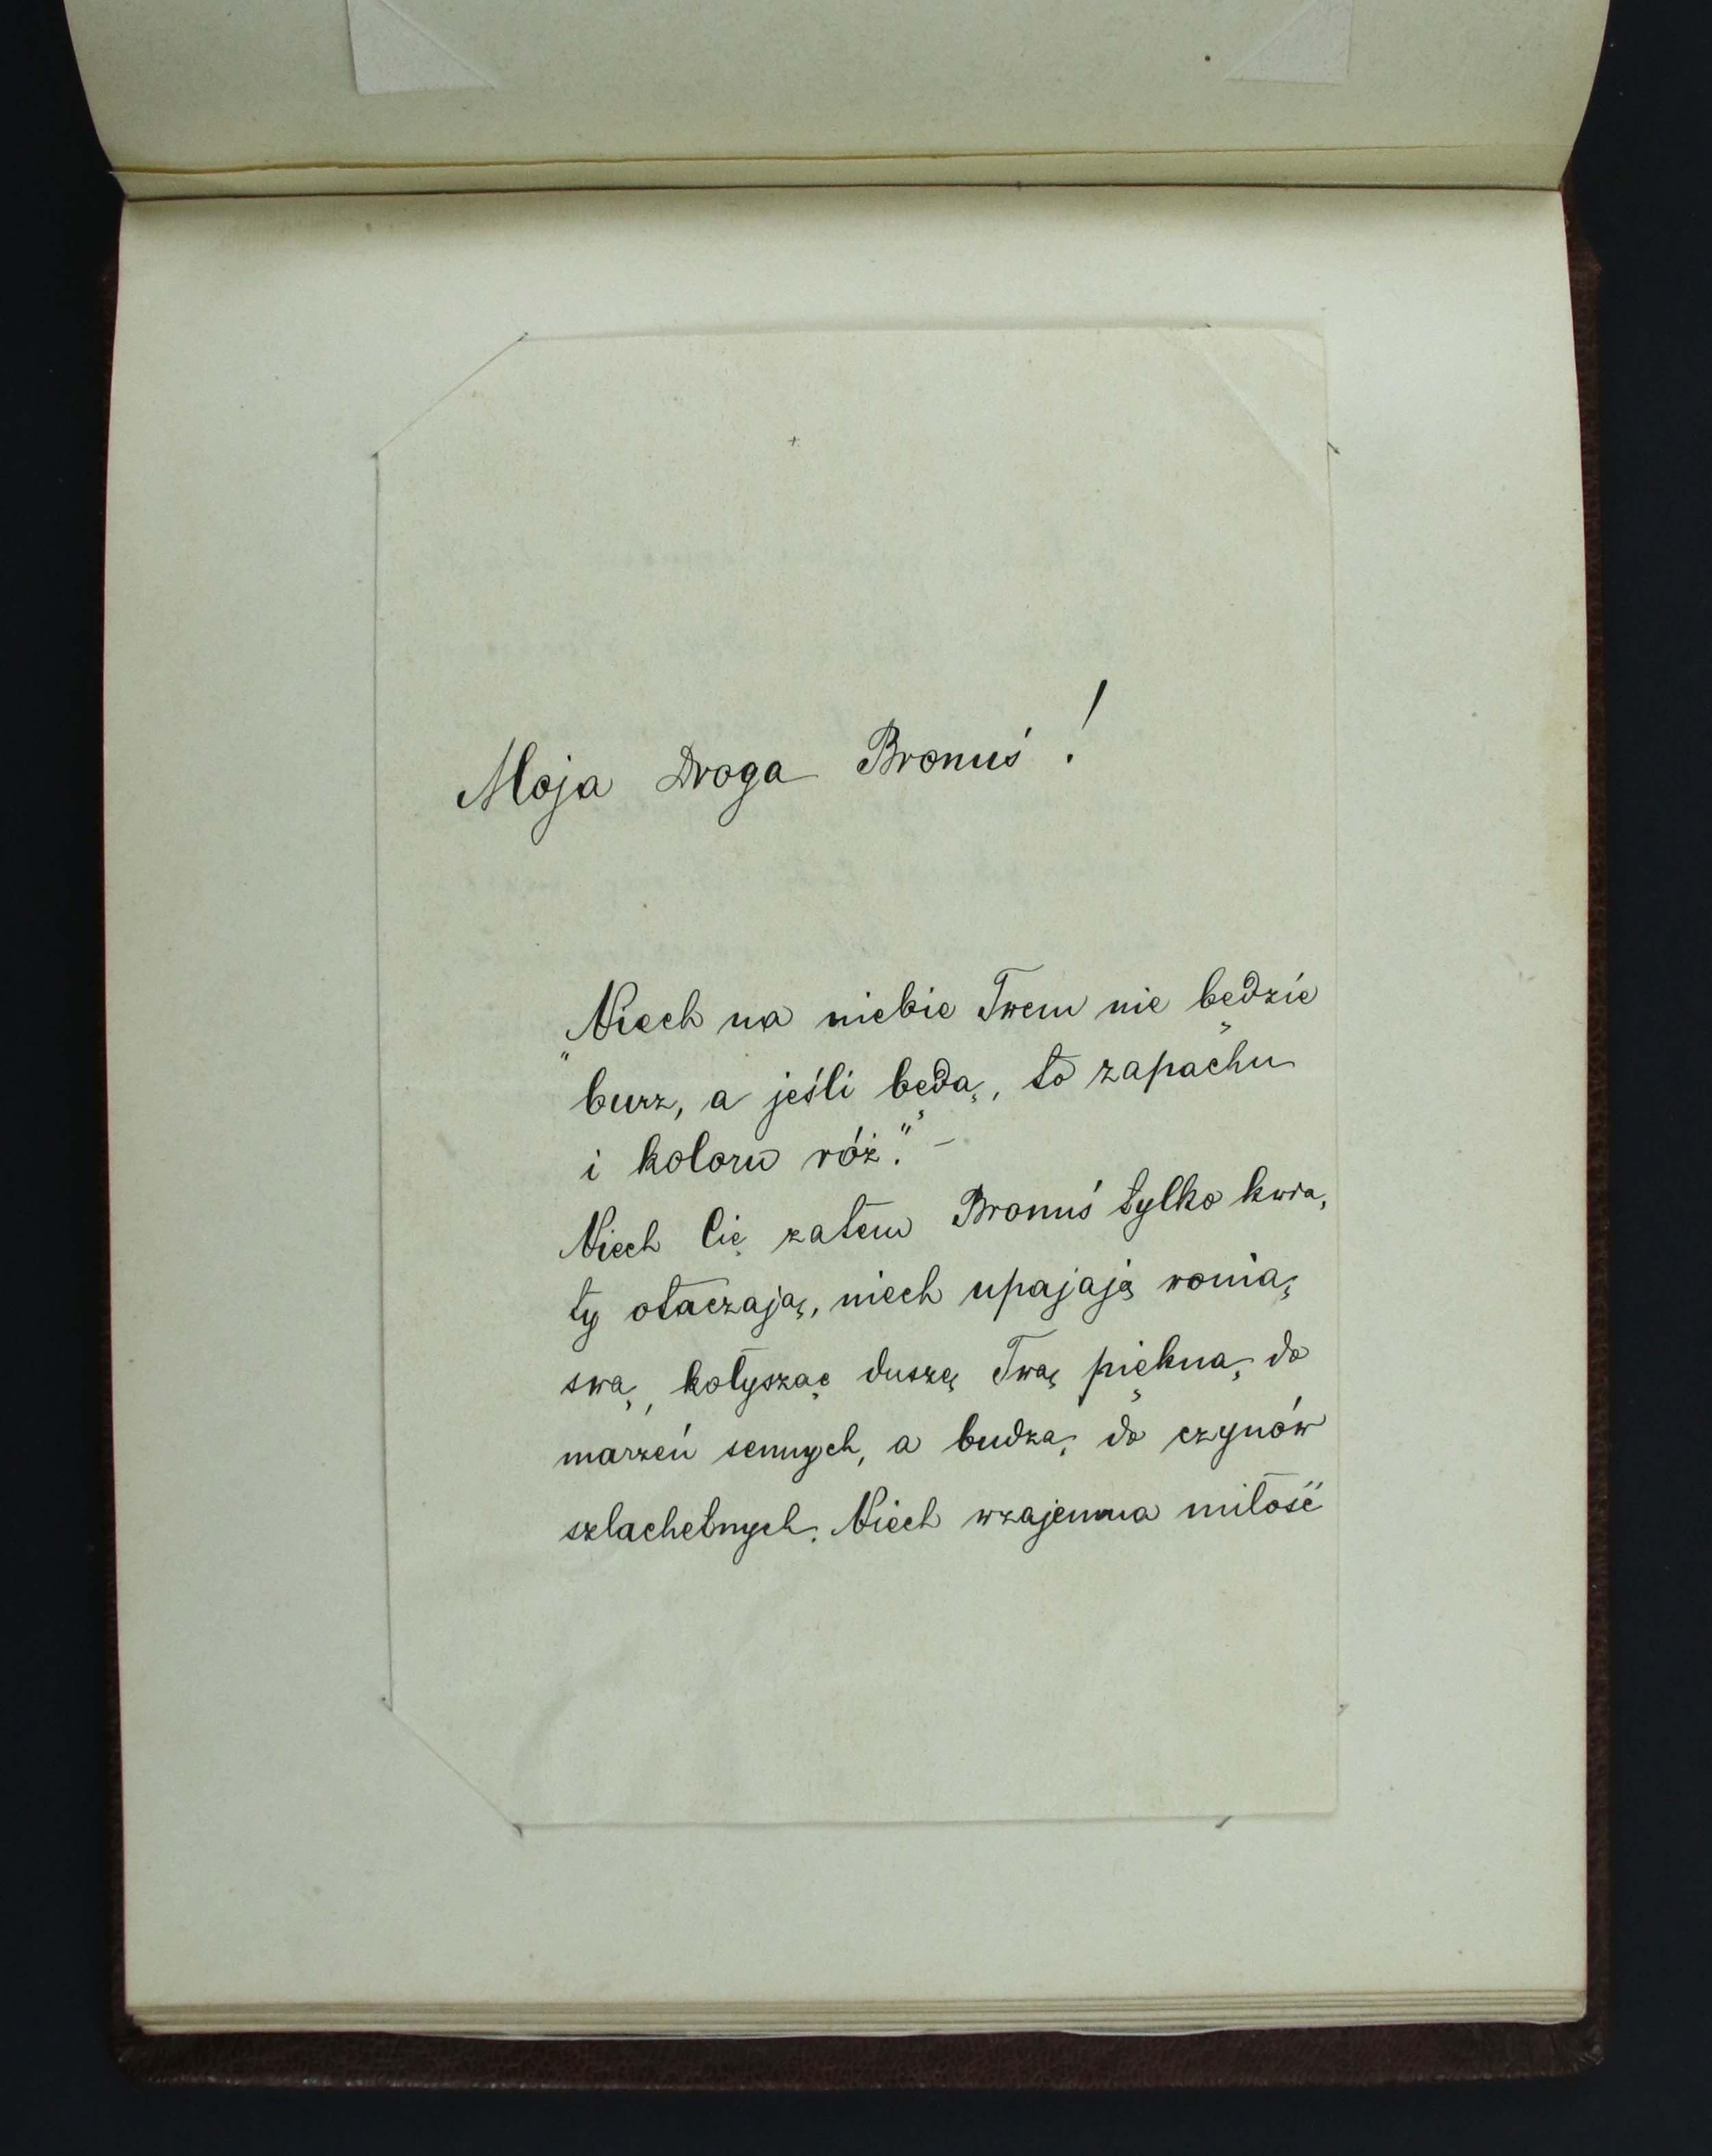 Moja Droga Bronuś!
„Niech na niebie Twem nie będzie
burz, a jeśli będą, to zapachu
i koloru róż." –
Niech Cię zatem Bronuś tylko kwia,
ty otaczają, niech upajają wonią
swą, kołysząc duszę Twą piękną do
marzeń sennych, a budzą do czynów
szlachetnych. Niech wzajemna miłość